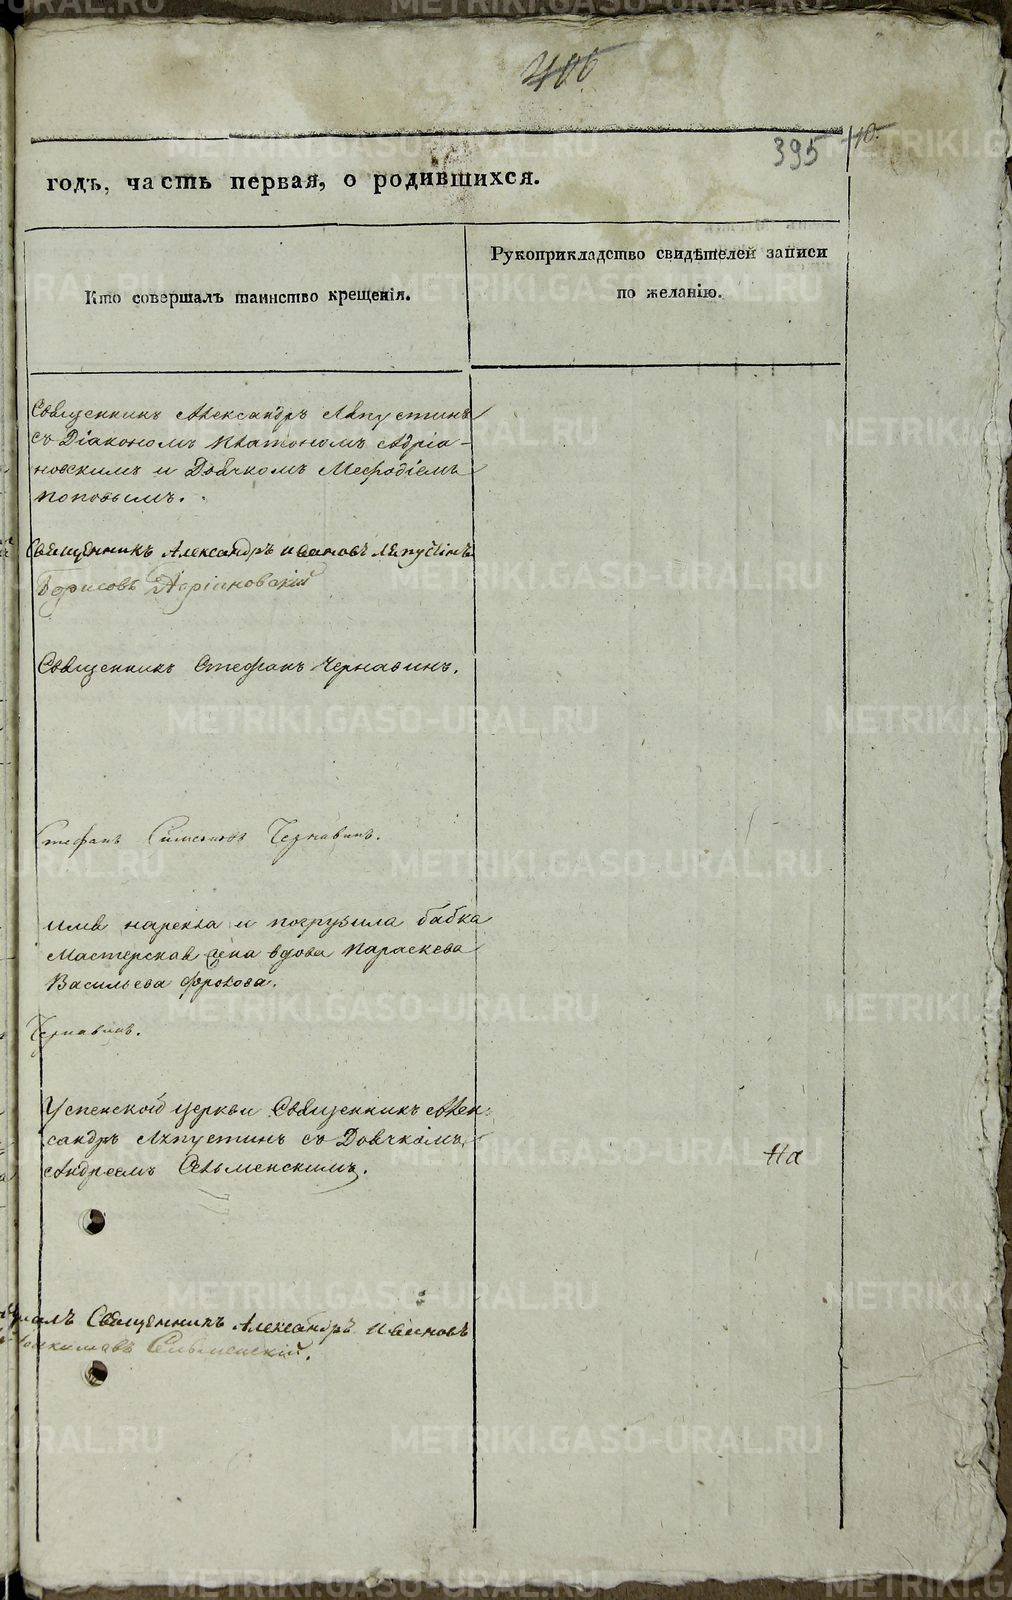 406
395
110.
годъ, часть первая, о родившихся.
Кто совершалъ таинство крещенія.
Рукоприкладство свидѣтелей записи
по желанію.
Священникъ Александръ Ляпустинъ
съ Діакономъ Платономъ Адріа-
новскимъ и Дьячкомъ Мефодіемъ
Поповымъ.
Священникъ Александръ Ивановъ Ляпустинъ
Борисовъ Адріановскій
Священникъ Стефанъ Чернавинъ.
Стефанъ Симеоновъ Чернавинъ.
имя нарекла и погрузила бабка
Мастерская жена вдова Параскева
Васильева Фролова.
Чернавинъ.
Успенской церкви Священникъ Алек-
сандръ Ляпустинъ съ Дьячкомъ
Андреемъ Сельменскимъ.
На
Священникъ Александръ Ивановъ
Сельменскій.
METRIKI.GASO-URAL.RU